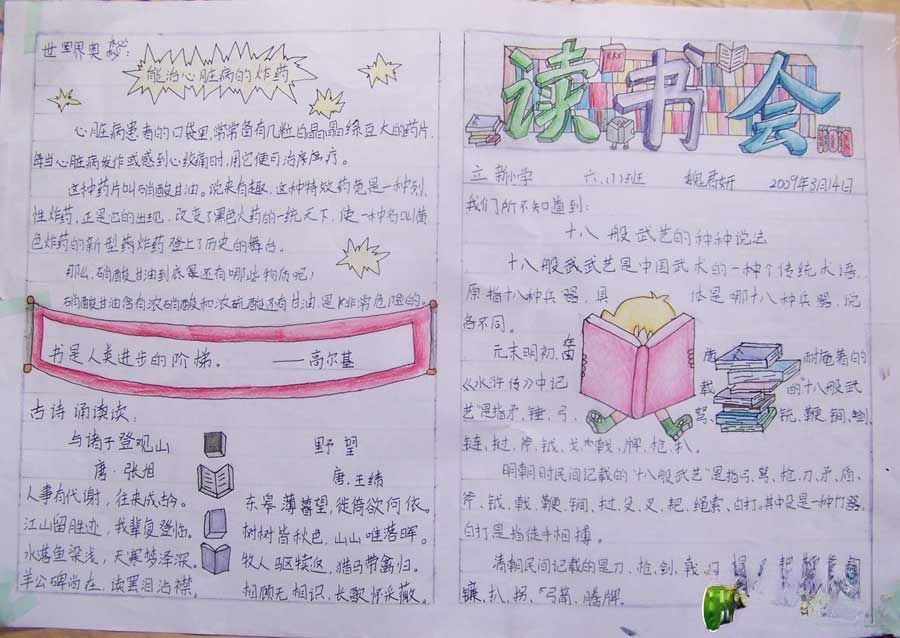 世界奥秘:
能治心脏病的炸药
心脏病患者的口袋里,常常备有几粒白晶晶绿豆大的药片,
每当心脏病发作或感到心绞痛时,用它便可治疗医疗。
这种药片叫硝酸甘油。说来有趣,这种特效药竟是一种烈
性炸药,正是它的出现,改变了黑色火药的一统天下,使一种名叫黄
色炸药的新型药炸药登上了历史的舞台。
那么,硝酸甘油到底是还有哪些物质呢?
硝酸甘油含有浓硝酸和浓硫酸还有甘油,是非常危险的。
书是人类进步的阶梯。 ——高尔基
古诗诵读读:
与诸子登观山
唐·张旭
人事有代谢,往来成古今。
江山留胜迹,我辈复登临。
水落鱼梁浅,天寒梦泽深。
羊公碑尚在,读罢泪沾襟。
野望
唐·王绩
东皋薄暮望,徙倚欲何依。
树树皆秋色,山山唯落晖。
牧人驱犊返,猎马带禽归。
相顾无相识,长歌怀采薇。
读书会
立新小学 六、(1)班 2009年3月14日
我们所不知道到:
十八般武艺的种种说法
十八般武武艺是中国武术的一种个传统术语,
原指十八种兵器,具体是哪十八种兵器,说
各不同。
元末明初,施耐庵著的
《水浒传》中记载的"十八般武
艺"是指矛、锤、弓、弩、铳、鞭、锏、剑、
链、挝、斧、钺、戈、戟、牌、枪、扒。
明朝时民间记载的"十八般武艺"是指弓、弩、枪、刀、矛、盾、
斧、钺、戟、鞭、锏、挝、殳、叉、耙、绳索、白打,其中殳是一种竹器,
白打是指徒手相搏。
清朝民间记载的是刀、枪、剑、戟
镰、扒、拐、弓箭、腾牌。